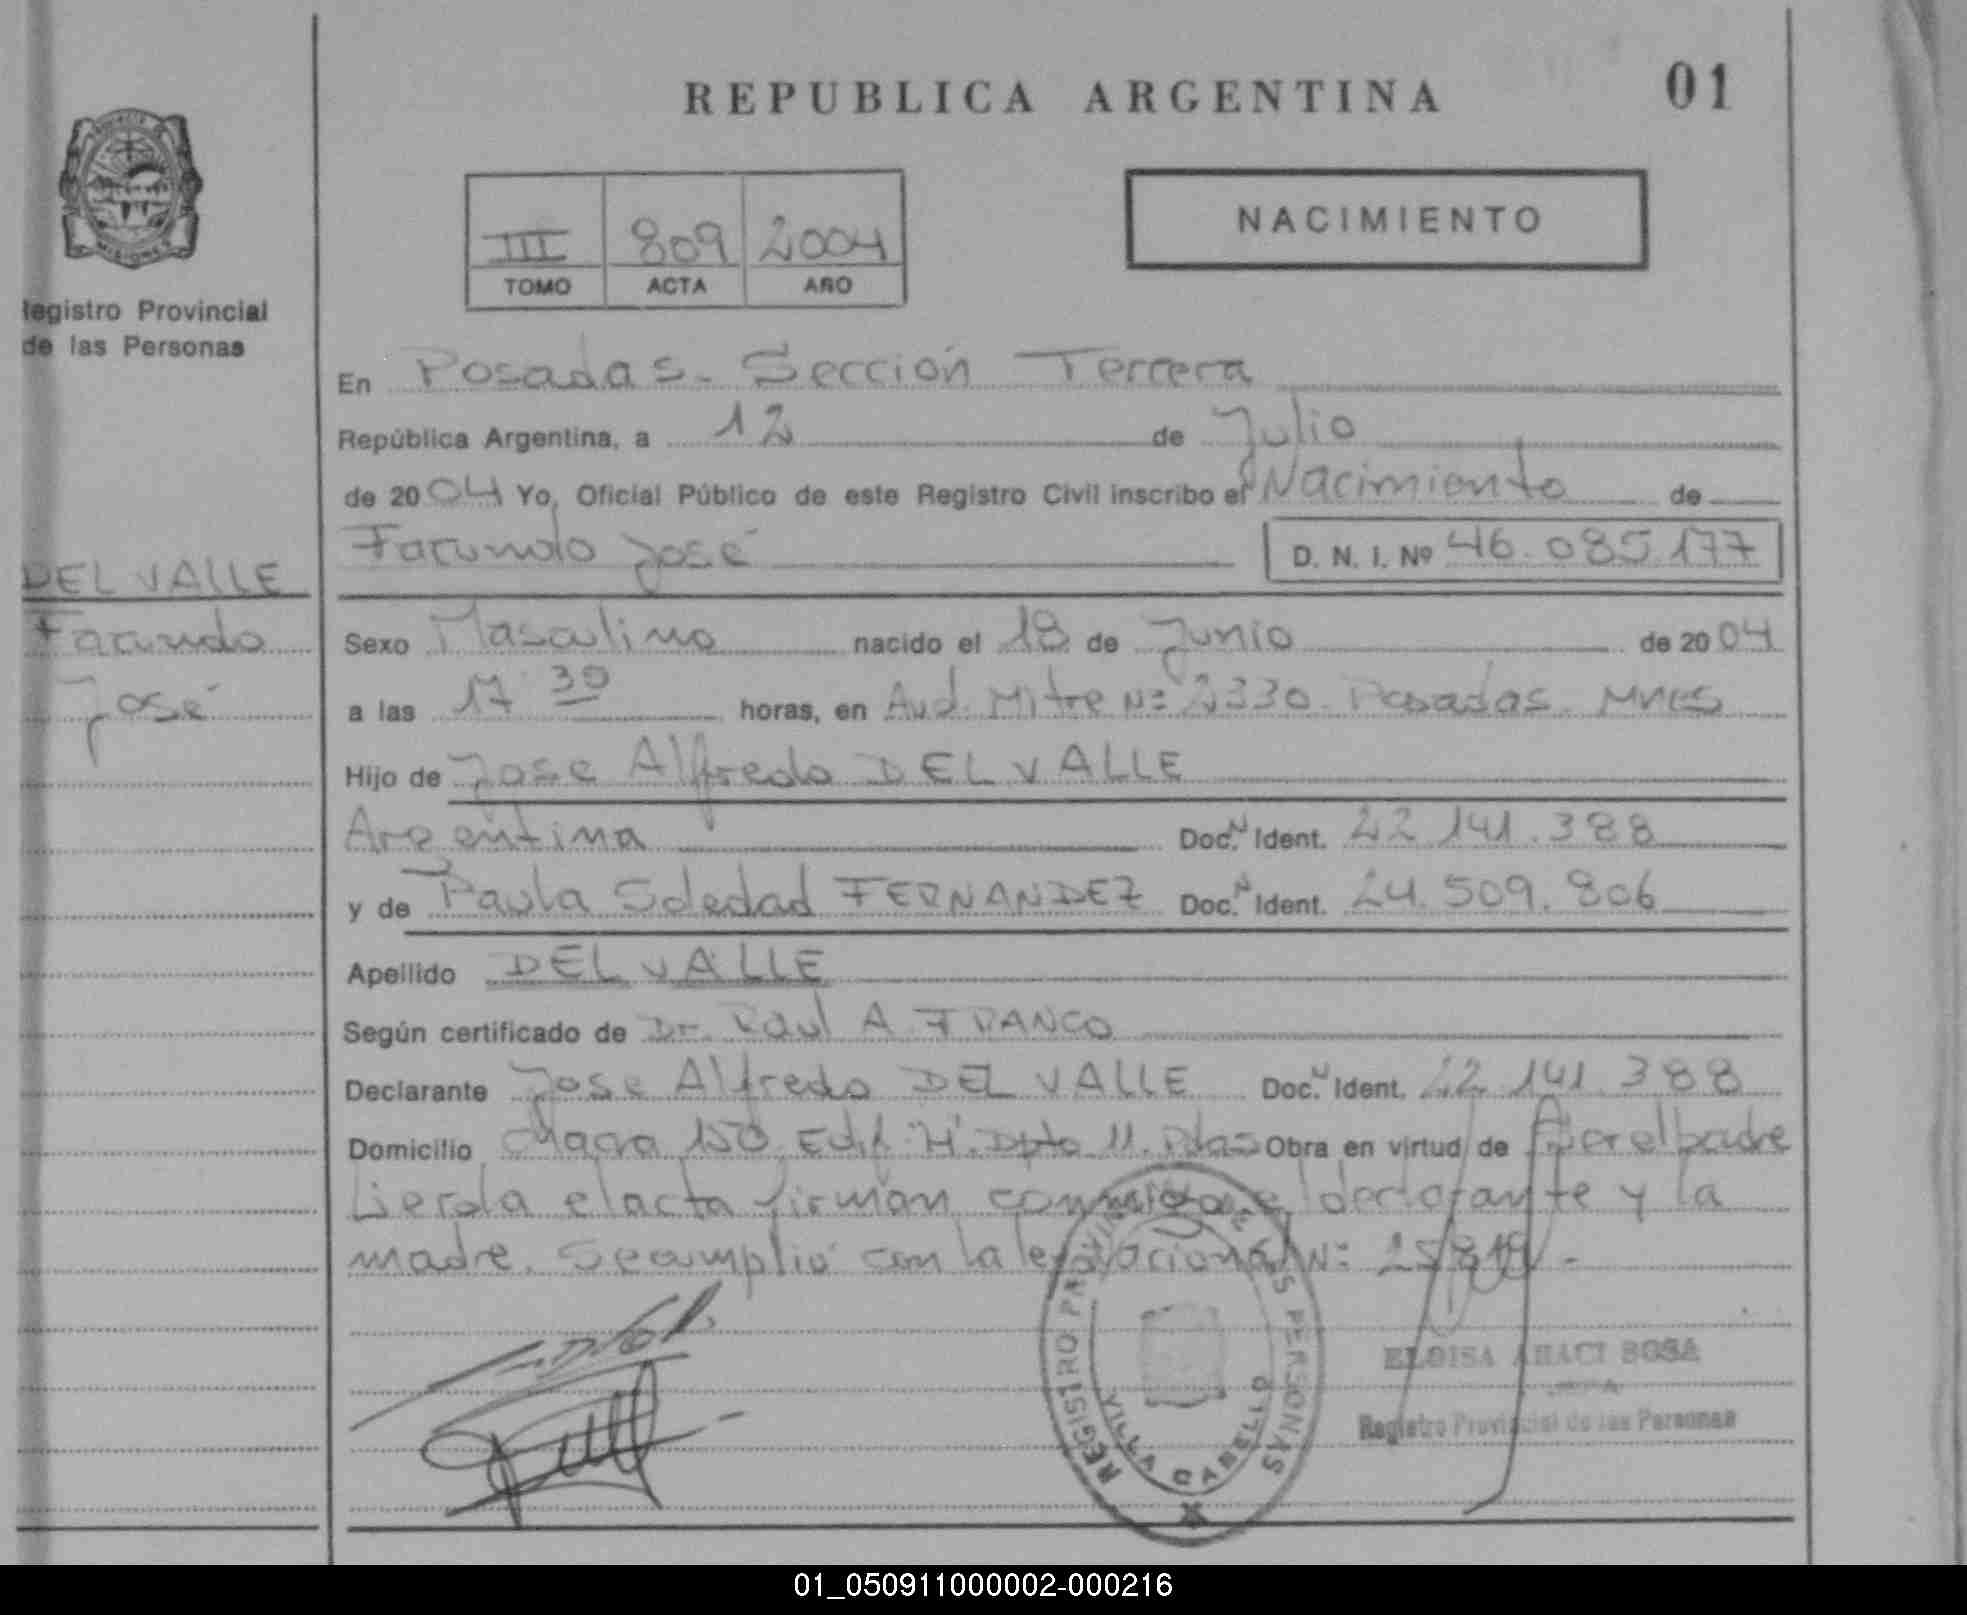 REPUBLICA ARGENTINA
01
PROVINCIA DE
MISIONES
Registro Provincial
de las Personas
III 809 2004
TOMO ACTA AÑO
NACIMIENTO
En Posadas - Sección Tercera
República Argentina, a 12 de Julio
de 2004 Yo, Oficial Público de este Registro Civil inscribo el Nacimiento de
Facundo José D. N. I. Nº 46.085.177
DEL VALLE
Facundo
José
Sexo Masculino nacido el 18 de Junio de 2004
a las 17 30 horas, en Avd. Mitre Nº 2330 - Posadas - Mnes
Hijo de Jose Alfredo DEL VALLE
Argentina Doc. N Ident. 22.141.388
y de Paula Soledad FERNANDEZ Doc. N Ident. 24.509.806
Apellido DEL VALLE
Según certificado de Dr. Raul A. FRANCO
Declarante Jose Alfredo DEL VALLE Doc. N Ident. 22.141.388
Domicilio Chacra 150 Edif "H". Dpto 11. Pdas Obra en virtud de ser el padre
Lierda el acta firman conmigo el declarante y la
madre. Se cumplió con la legislacional Nº: 25819 -
REGISTRO PROVINCIAL DE LAS PERSONAS
VILLA CABELLO
ELOISA ARACI SOSA
JEFA
Registro Provincial de las Personas
01_050911000002-000216